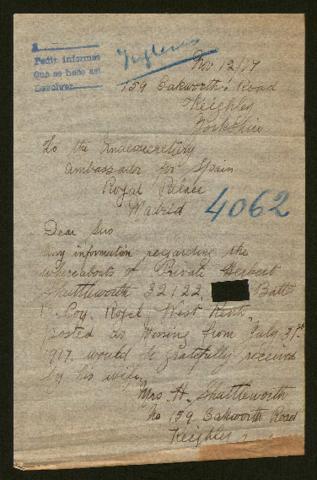 Pedir informes
Que se haga así
Devolver
Nov 12/17
159 Oakworth Road
Keighley
Yorkshire
To the
Ambassador for Spain
Royal Palace
Madrid
4062
Dear Sirs
Any information regarding the
whereabouts of Private Herbert
Shuttleworth 32122, Batt
Coy, Royal West Kent,
posted as Missing from July 31st
1917. would be gratefully received
by his wife,
Mrs H. Shuttleworth
No 159 Oakworth Road
Keighley